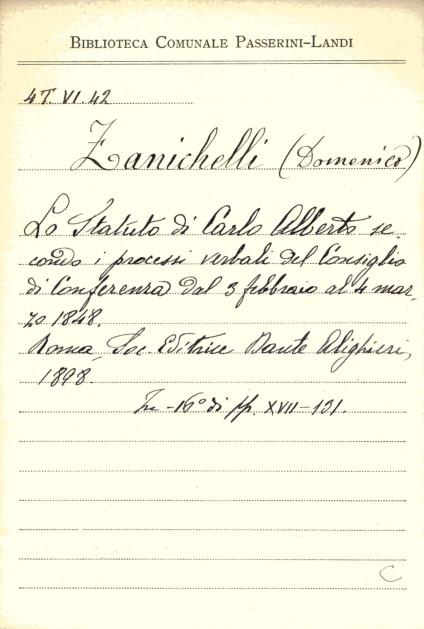 BIBLIOTECA COMUNALE PASSERINI-LANDI
4T. VI. 42
Zanichelli (Domenico)
Lo Statuto di Carlo Alberto se-
condo i processi verbali del Consiglio
di Conferenza dal 3 febbraio al 4 mar,
zo 1848.
Roma, Soc. Editrice Dante Alighieri,
1898.
In-16° di pp. XVII-131.
C